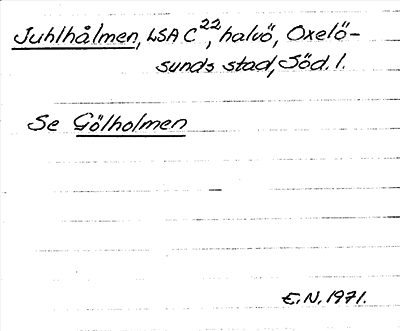 Juhlhålmen, LSA C²², halvö, Oxelö-
sunds stad, Söd. l.
Se Gölholmen
E.N. 1971.